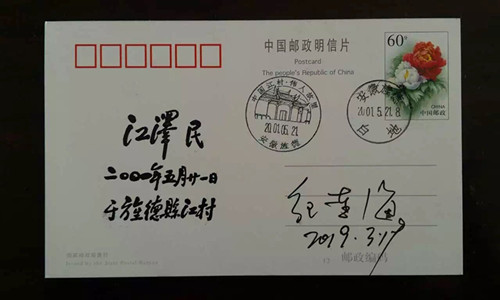 中国邮政明信片
Postcard
The people's Republic of China
60分
CHINA
中国邮政
2001.05.21
安徽旌德
安徽旌德
2001.5.21.8
白地
江澤民
二〇〇一年五月廿一日
于旌德縣江村
2019.3.19
邮政编码